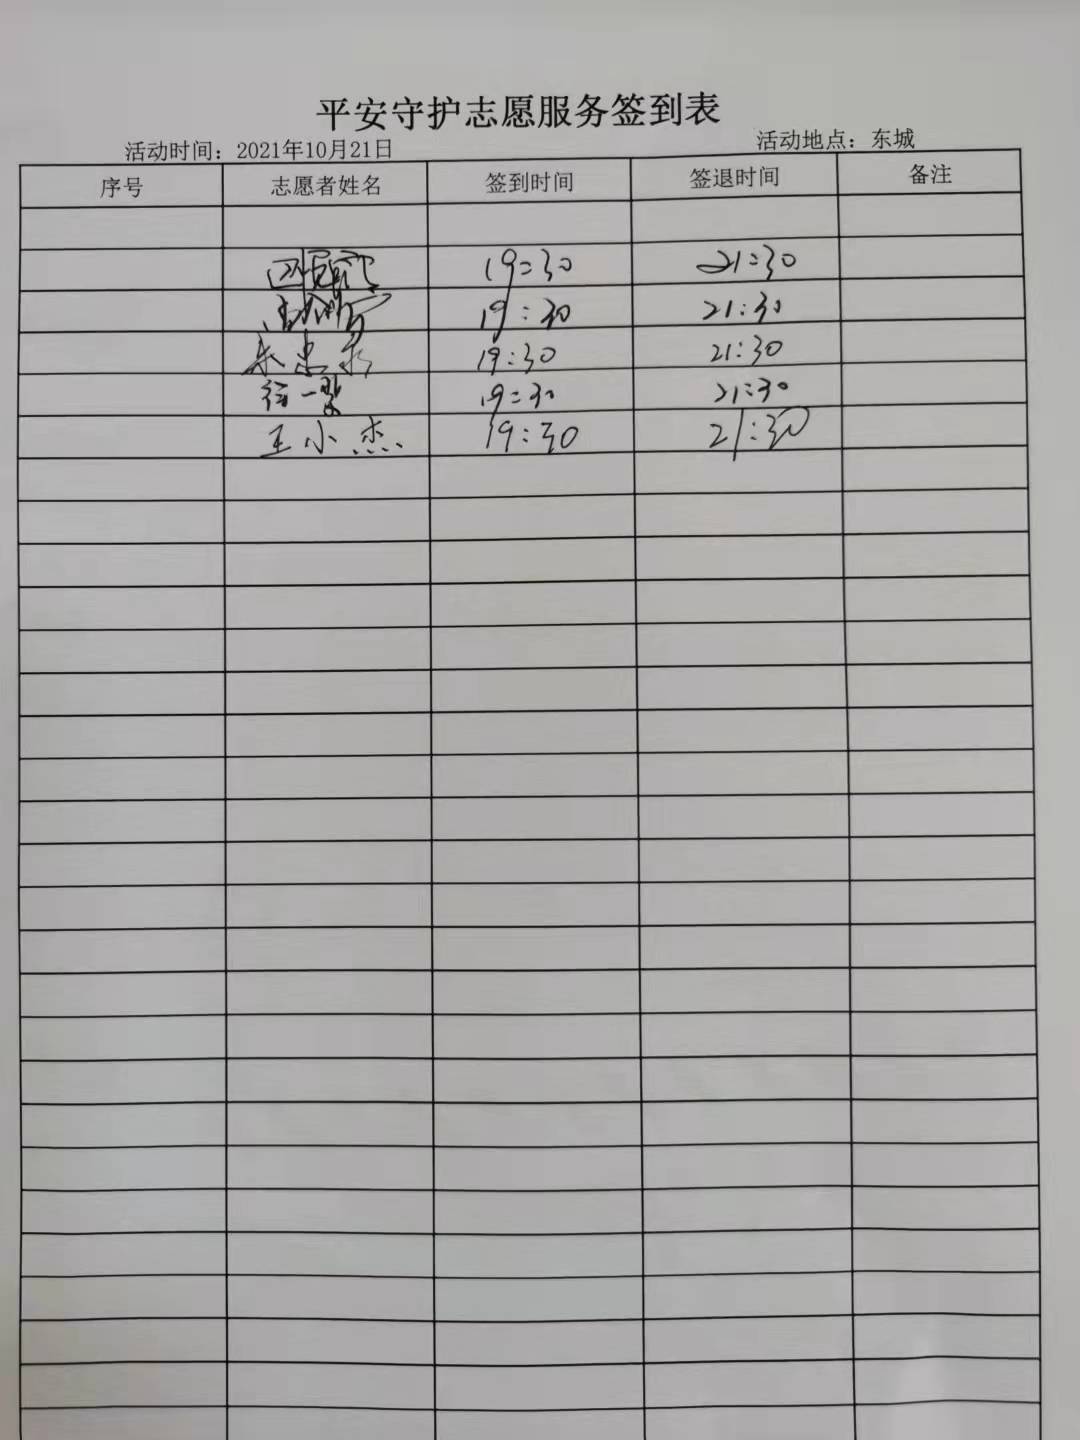 平安守护志愿服务签到表
活动时间：2021年10月21日 活动地点：东城
序号 志愿者姓名 签到时间 签退时间 备注
19:30 21:30
19:30 21:30
朱忠 19:30 21:30
徐一 19:30 21:30
王小杰 19:30 21:30